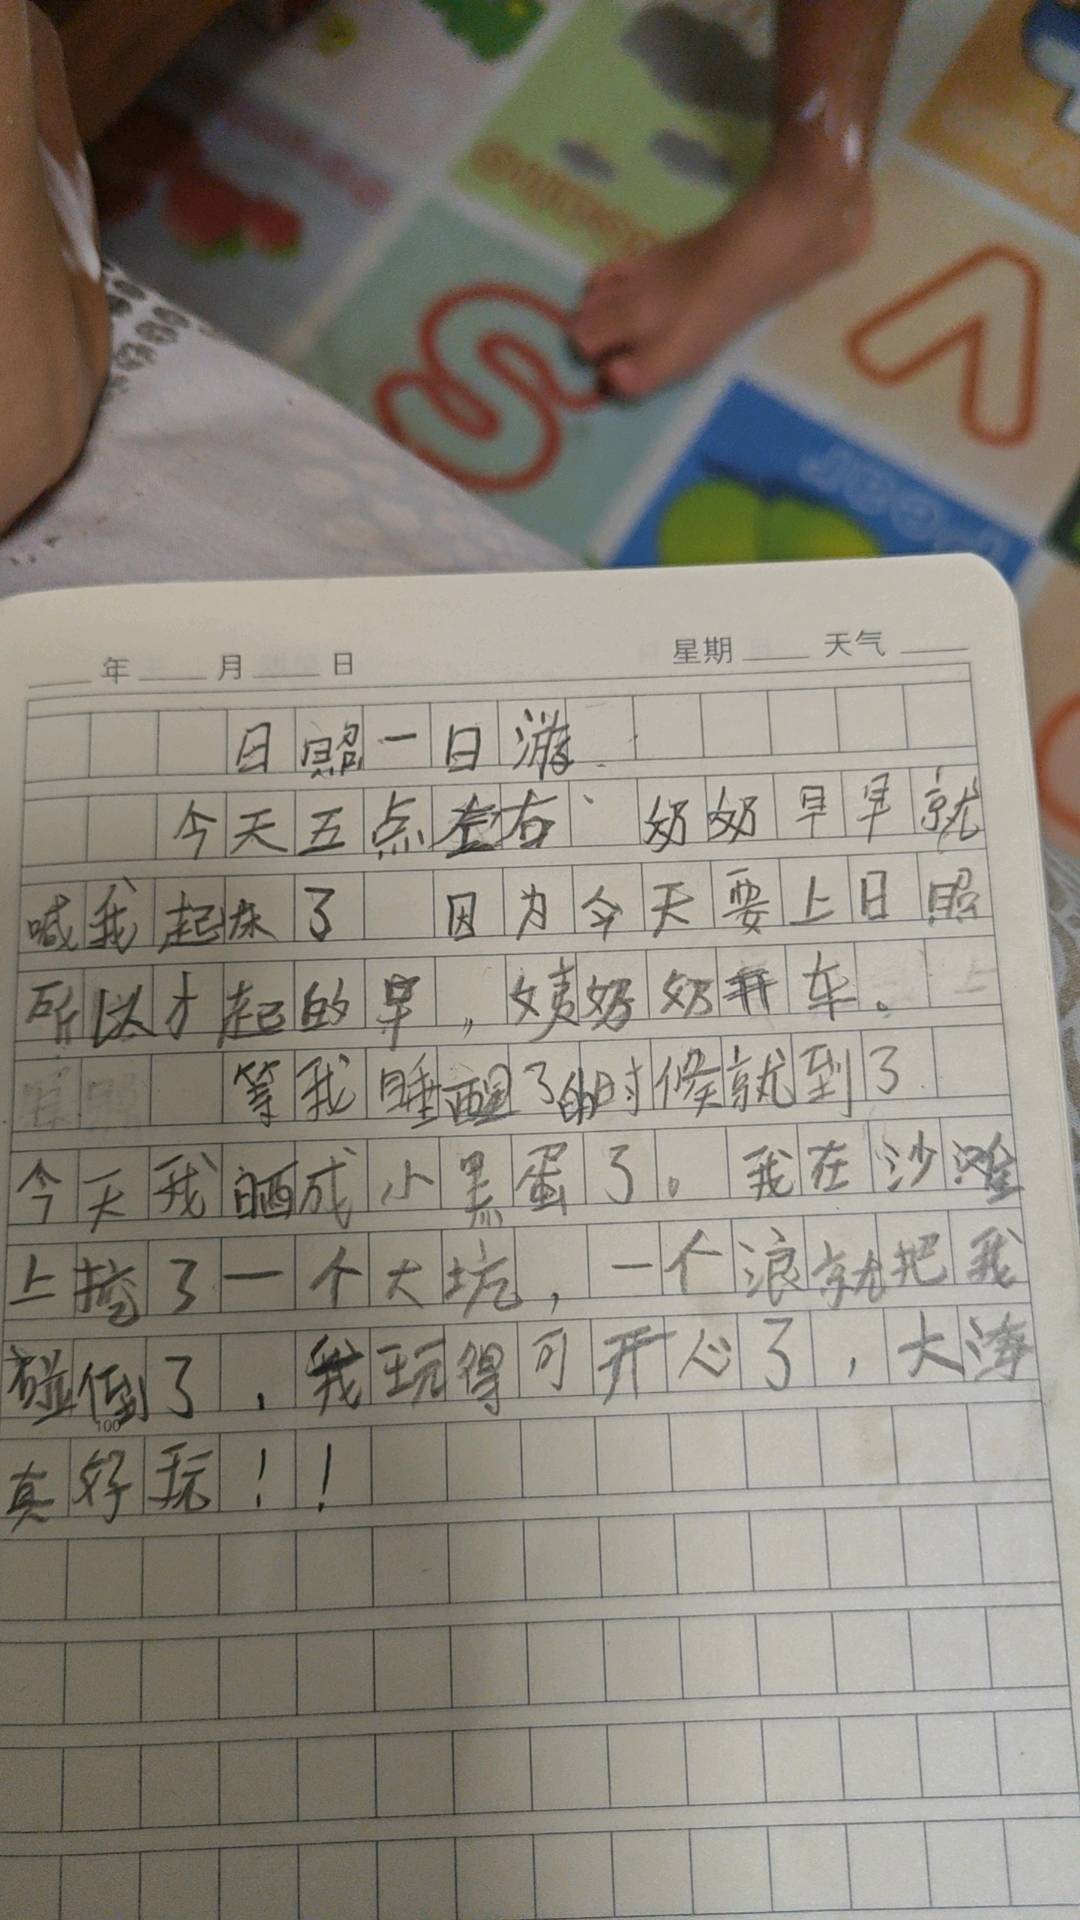 年 月 日 星期 天气
日照一日游
今天五点左右、奶奶早早就
喊我起床了 因为今天要上日照
所以才起的早,姨奶奶开车。
等我睡醒了的时候就到了
今天我晒成小黑蛋了。我在沙滩
上挖了一个大坑,一个浪就把我
碰倒了,我玩得可开心了,大海
100
真好玩!!